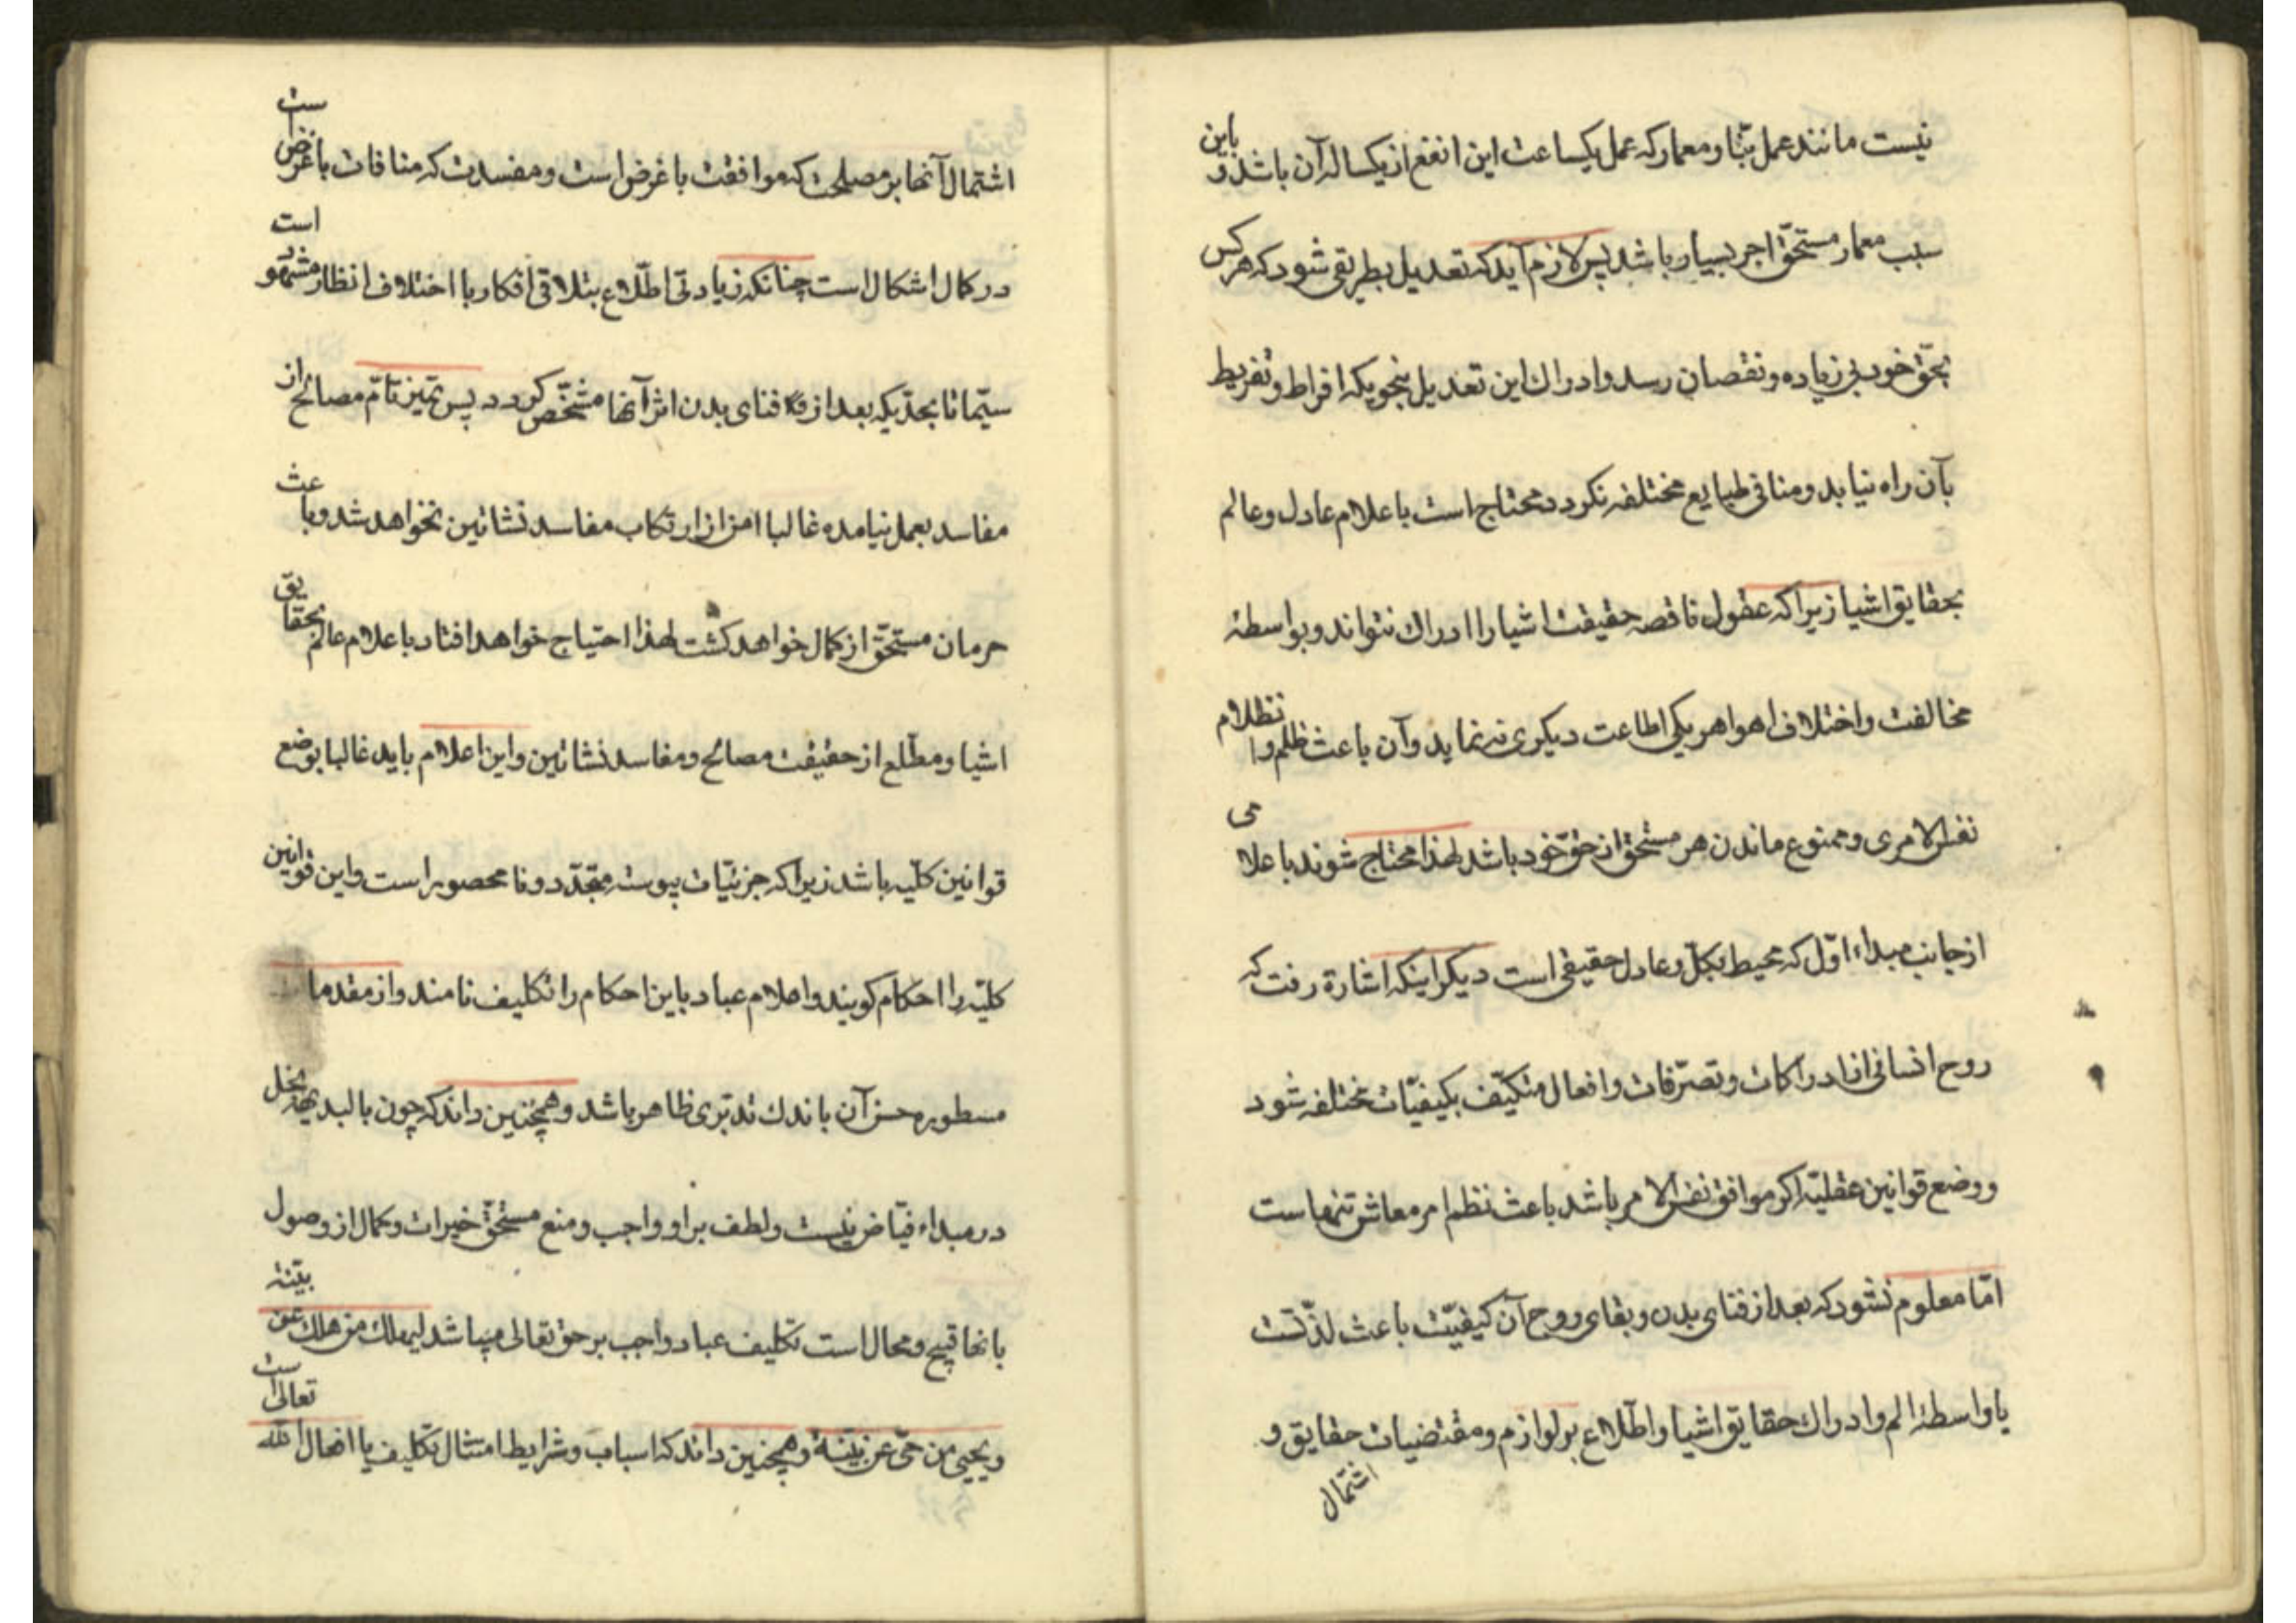 نیست مانند عمل بنّا و معمار که عمل یکساعت این انفع از یکساله آن باشد و باین
سبب معمار مستحقّ اجر بسیار باشد پس لازم آید که تعدیل بطریقی شود که هر کس
بحقّ خود بی زیاده و نقصان رسد و ادراك این تعدیل بنحویکه افراط و تفریط
بآن راه نیابد و منافی طبایع مختلفه نکردد محتاج است باعلام عادل و عالم
بحقایق اشیا زیرا که عقول ناقصه حقیقت اشیا را ادراك نتواند و بواسطهٔ
مخالفت و اختلاف اهوا هر یکی اطاعت دیکری نه نماید و آن باعث ظلم و انظلام
نفس الامری و ممنوع ماندن هر مستحق از حقّ خود باشد لهذا محتاج شوند باعلامی
از جانب مبداء اوّل که محیط بکلّ و عادل حقیقی است دیکر اینکه اشارة رفت که
روح انسانی از ادراکات و تصرّفات و افعال متکیّف بکیفیّات مختلفه شود
و وضع قوانین عقلیّه اکر موافق نفس الامر باشد باعث نظم امر معاش تنهاست
امّا معلوم نشود که بعد از فنای بدن و بقای روح آن کیفیّت باعث لذّتست
یا واسطهٔ الم و ادراك حقایق اشیا و اطّلاع بر لوازم و مقتضیات حقایق و
اشتمال
اشتمال آنها بر مصلحت که موافقت با غرض است و مفسدت که منافات با غرض است
در کمال اشکال است چنانکه زیادتی اطّلاع بتلاقی افکار با اختلاف انظار مشهور است
سیّما تا بحدّیکه بعد از فنای بدن اثر آنها مشخّص کردد پس تمیز تامّ مصالح از
مفاسد بعمل نیامده غالبا امن از ارتکاب مفاسد نشاتین نخواهد شد و باعث
حرمان مستحقّ از کمال خواهد کشت لهذا احتیاج خواهد افتاد باعلام عالم بحقایق
اشیا و مطّلع از حقیقت مصالح و مفاسد نشاتین و این اعلام باید غالبا بوضع
قوانین کلّیه باشد زیرا که جزئیّات پیوسته متجدّد و نا محصور است و این قوانین
کلیّه را احکام کویند و اعلام عباد باین احکام را تکلیف نامند و از مقدمات
مسطوره حسن آن باندك تدبّری ظاهر باشد و همچنین داند که چون بالبدیهه بخل
در مبداء فیّاض نیست و لطف بر او واجب و منع مستحقّ خیرات و کمال از وصول
بانها قبیح و محال است تکلیف عباد واجب بر حق تعالی میباشد لیهلك من هلك عن بیّنة
و یحیی من حیّ عن بیّنة و همچنین داند که اسباب و شرایط امتثال تکلیف یا افعال الله تعالی است